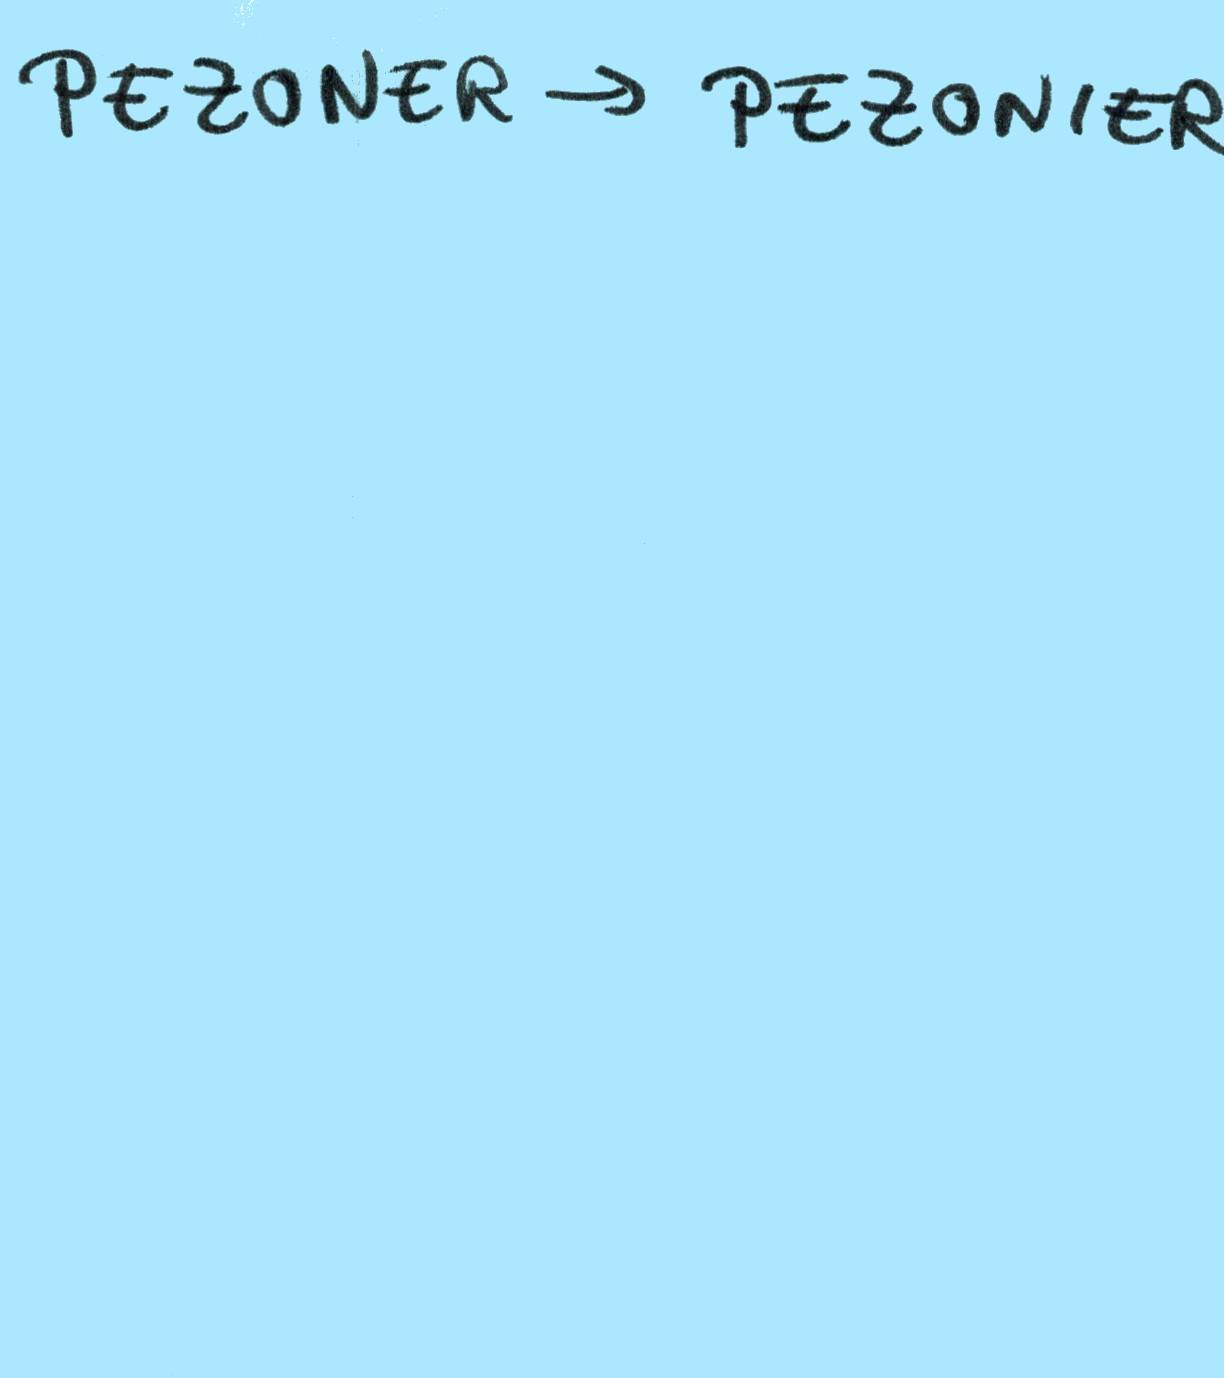 PEZONER → PEZONIER